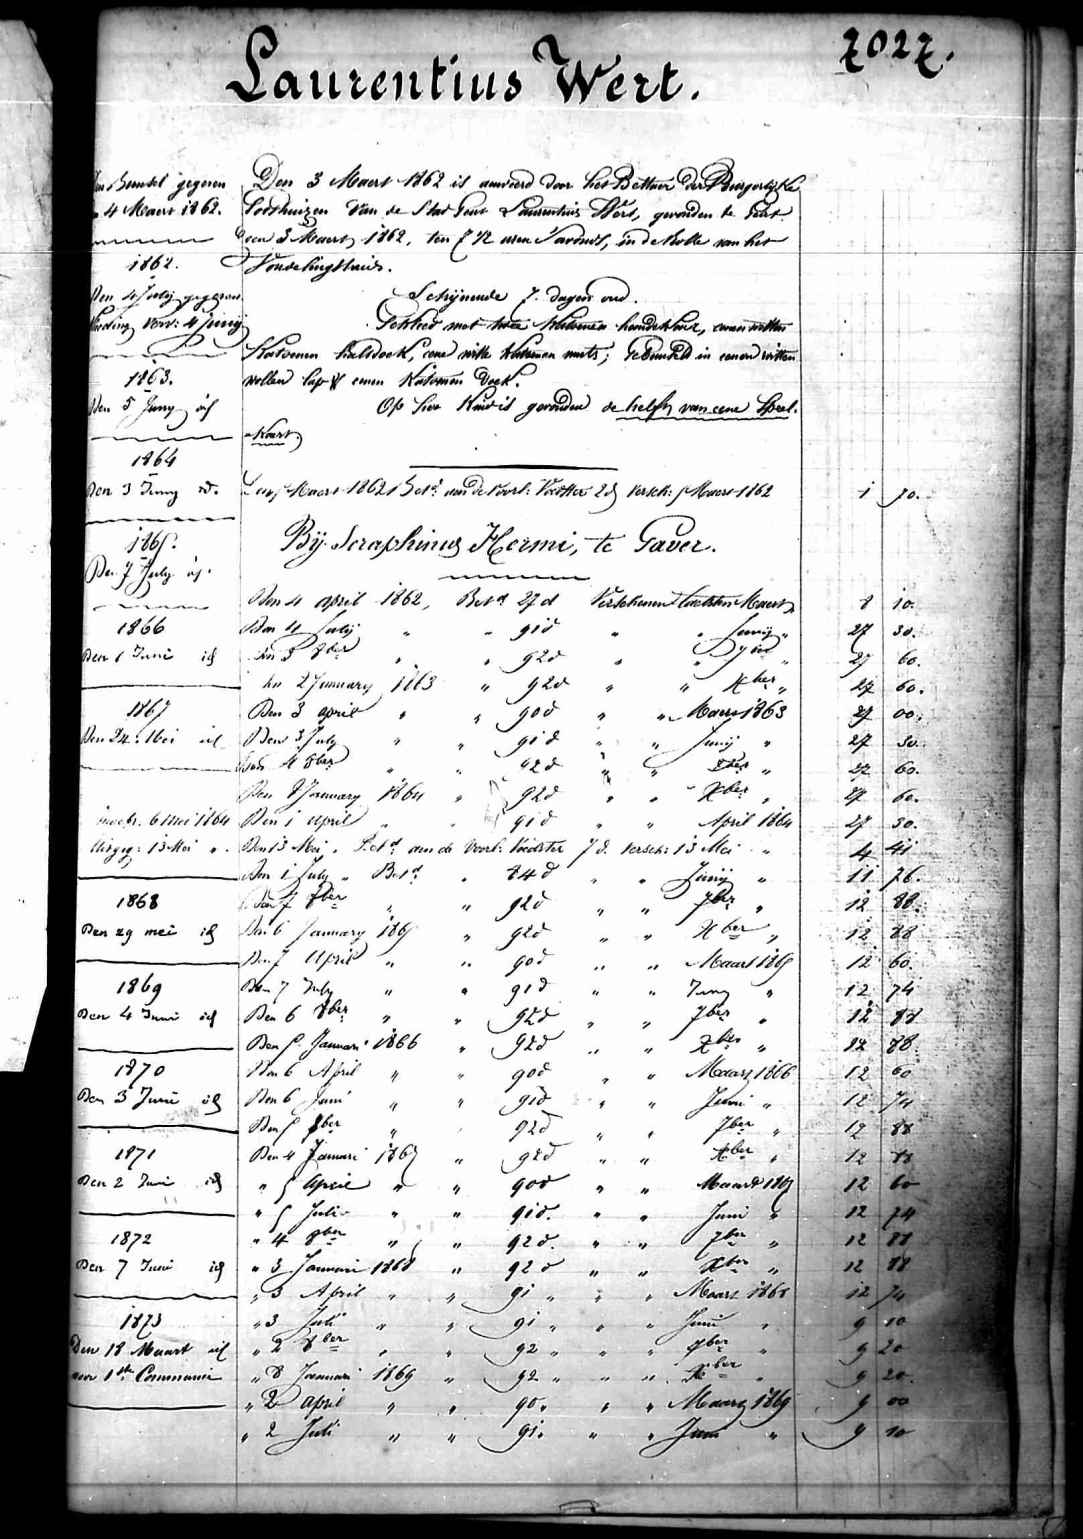 7027.
Laurentius Wert.
Den Bundel gegeven
4 Maert 1862.
1862.
Den 4 July gegeven
1863.
Den 5 Juny id
1864
Den 3 Juny id.
1865.
Den 7 July id.
1866
Den 1 Juni id
1867
Den 24 Mei id
6 Mei 1864
13 Mei
1868
Den 29 mei id
1869
Den 4 Juni id
1870
Den 3 Juni id
1871
Den 2 Juni id
1872
Den 7 Juni id
1873
Den 18 Maart id
voor 1ste Communie
Den 3 Maert 1862 is aanveerd door het Bestuer der Burgerlyke
Godshuizen van de Stad Gent Laurentius Wert, gevonden te Gent
den 3 Maert, 1862, ten 7 1/2 uren 's avonds, in de Rolle van het
Vondelingshuis.
Schijnende 7 dagen oud.
Gekleed met twee katoenen hemdekens, eenen witten
Katoenen halsdoek, eene witte katoenen muts; gebundeld in eenen witten
wollen lap & eenen Katoenen doek.
Op het Kind is gevonden de helft van eene Speel-
kaart.
Maert 1862 Betd aan de voorl: Voedster 2d versch: Maert 1862 1 70.
By Seraphinus Hermi, te Gaver.
Den 4 april 1862, Betd 27d Verschenen laetsten Maert 8 10.
Den 4 July " " 91d " " Juny " 27 30.
Den 3 8ber " " 92d " " 7ber " 27 60.
Den 2 January 1863 " 92d " " Xber " 27 60.
Den 3 april " " 90d " " Maert 1863 27 00.
Den 3 July " " 91d " " Junij " 27 30.
Den 4 8ber " " 92d " " " 27 60.
Den 8 January 1864 " 92d " " Xber " 27 60.
Den 1 April " " 91d " " April 1864 27 30.
Den 13 Mei " Betd aen de Voorl: Voedster 7d. versch: 13 Mei " 4 41
Den 1 July " Betd " 84d " " Junij " 11 76.
Den 7 8ber " " 92d " " 7ber " 12 88.
Den 6 January 1865 " 92d " " Xber " 12 88
Den 7 April " " 90d " " Maart 1865 12 60.
Den 7 July " " 91d " " Juny " 12 74
Den 6 8ber " " 92d " " 7ber " 12 88
Den 5 Januari 1866 " 92d " " Xber " 12 88.
Den 6 April " " 90d " " Maart 1866 12 60
Den 6 Juni " " 91d " " Juni " 12 74
Den 5 8ber " " 92d " " 7ber " 12 88
Den 4 Januari 1867 " 92d " " Xber " 12 88
" 5 April " " 90d " " Maart 1867 12 60
" 5 Juli " " 91d. " " Juni " 12 74
" 4 8ber " " 92d. " " 7ber " 12 88
" 3 Januari 1868 " 92d " " Xber " 12 88
" 3 April " " 91 " " " Maart 1868 12 74
" 3 Juli " " 91 " " " Juni " 9 10
" 2 8ber " " 92 " " " 7ber " 9 20
" 8 Januari 1869 " 92 " " " Xber " 9 20.
" 2 april " " 90 " " " Maart 1869 9 00
" 2 Juli " " 91 " " " Juni " 9 10